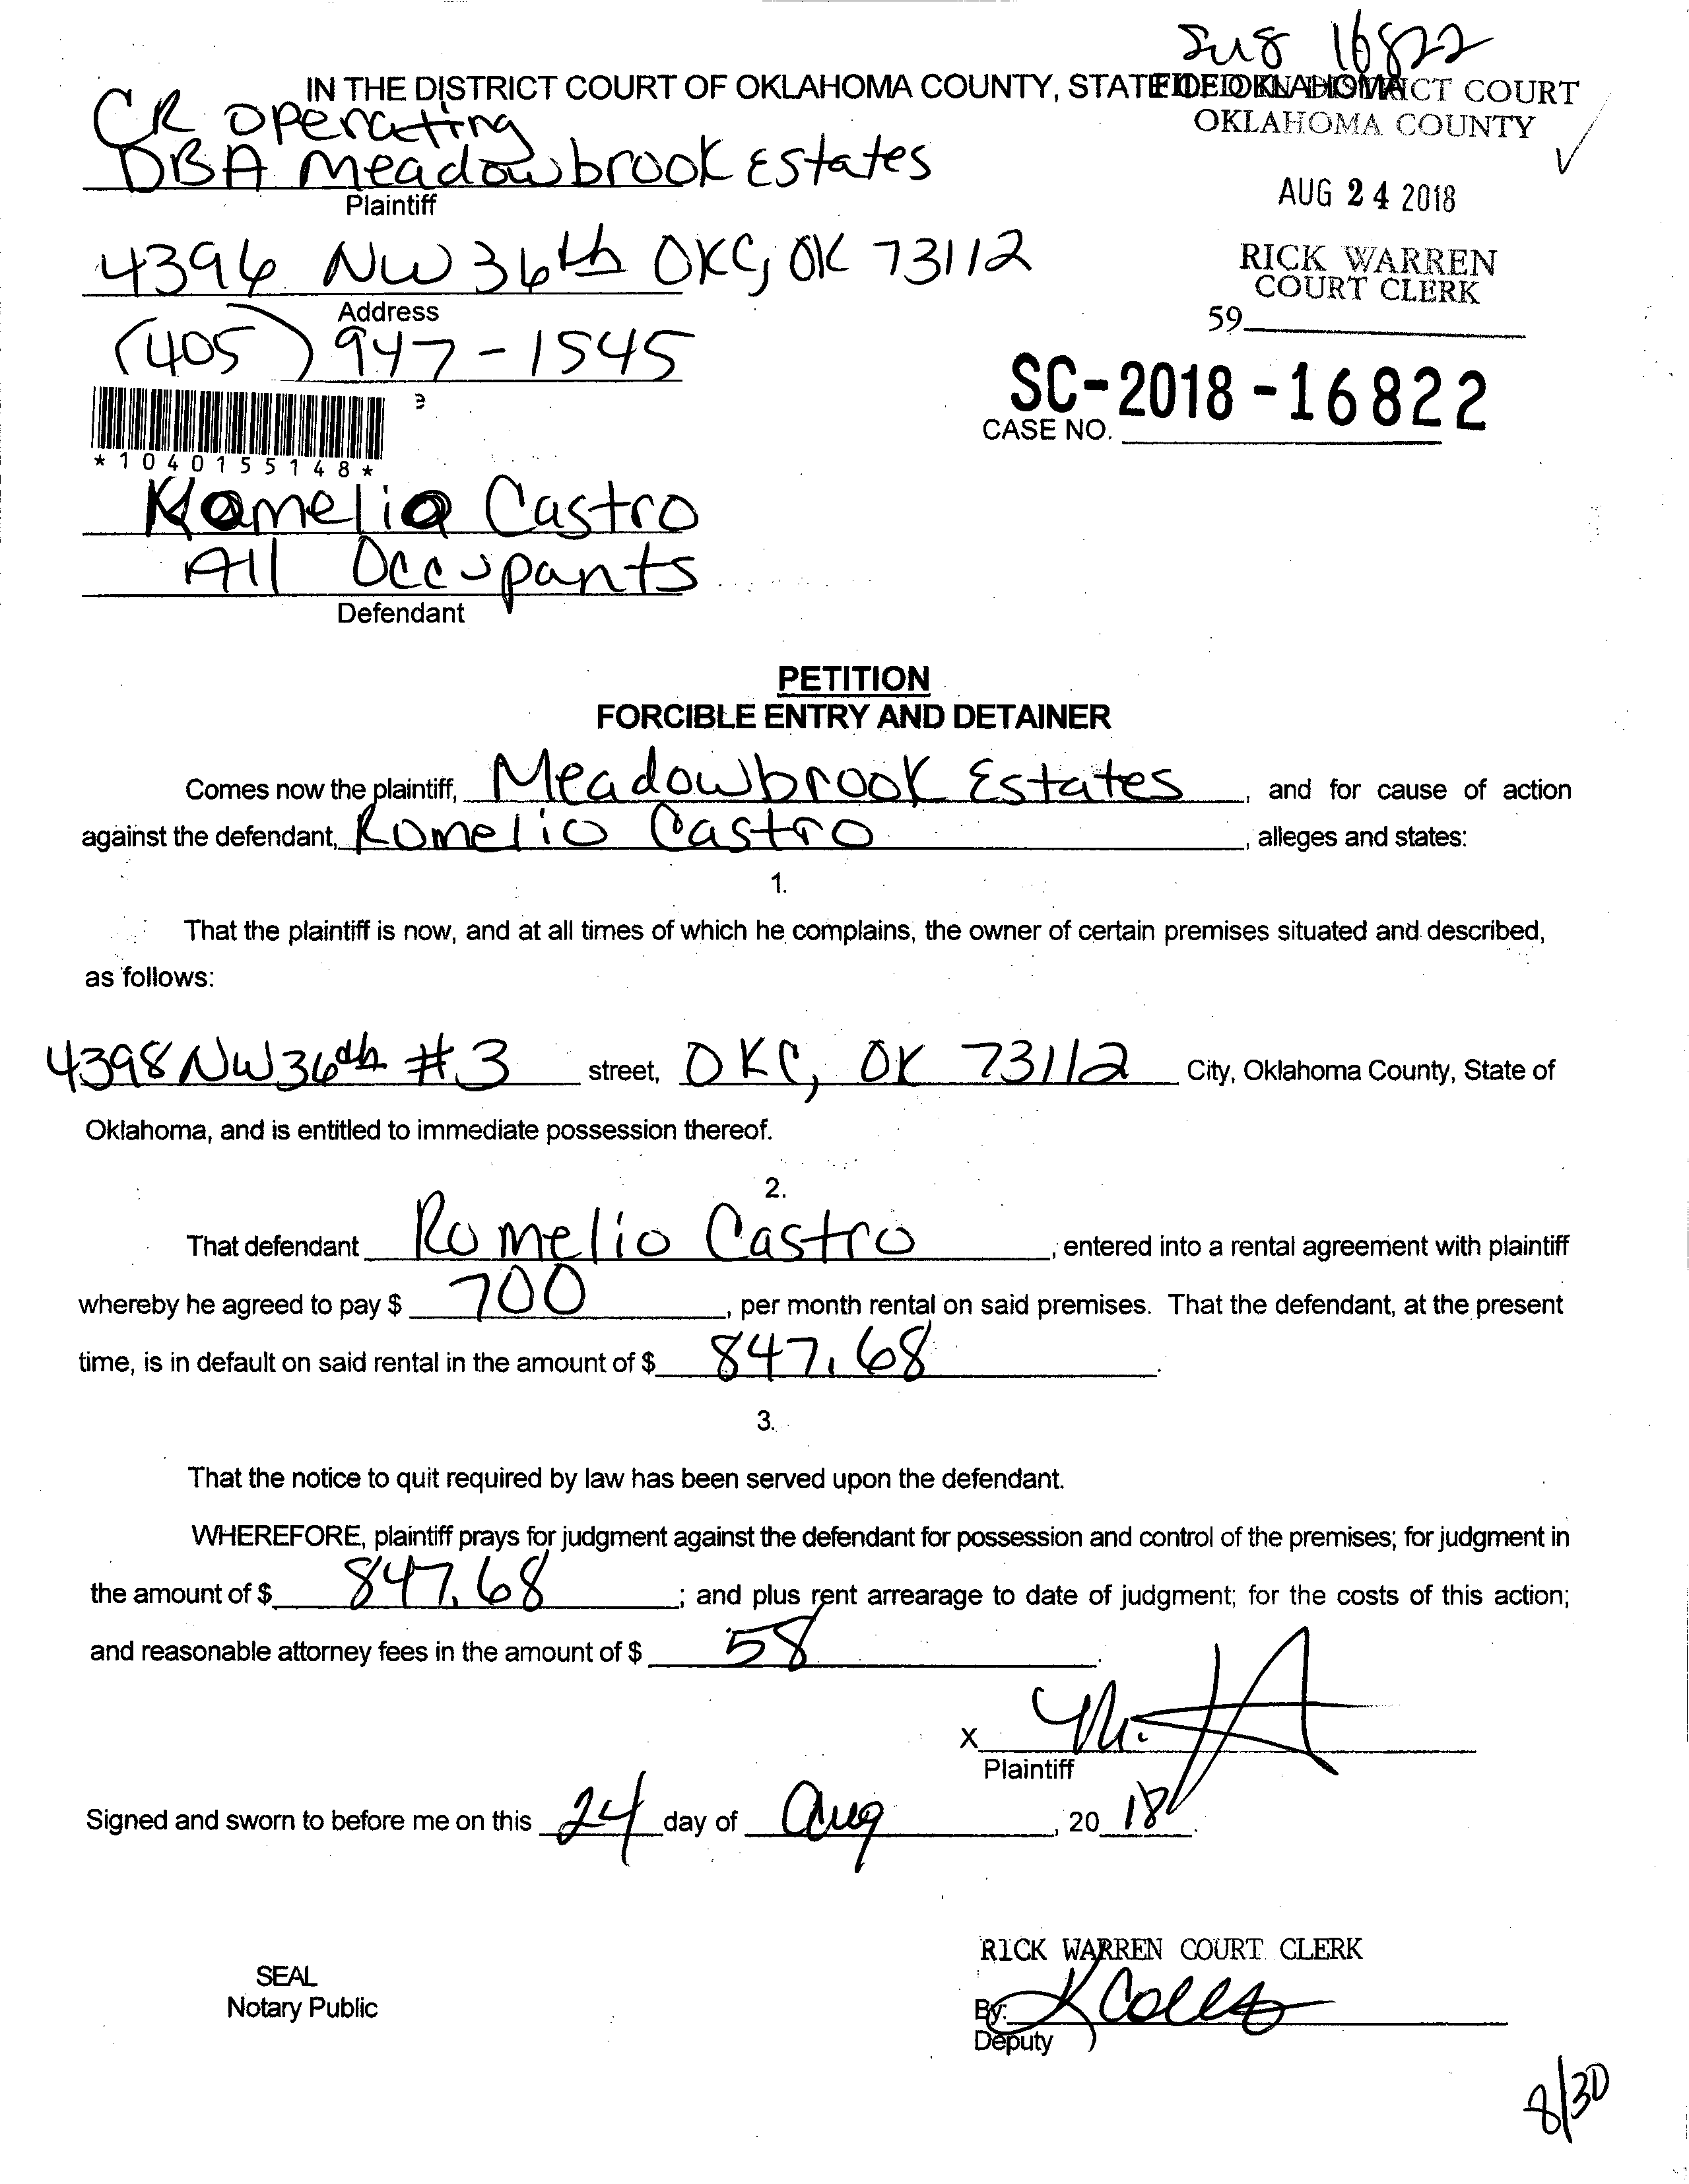 2018 16822
IN THE DISTRICT COURT OF OKLAHOMA COUNTY, STATE OF OKLAHOMA
FILED IN DISTRICT COURT
OKLAHOMA COUNTY
CR Operating
DBA Meadowbrook Estates
Plaintiff
AUG 24 2018
4396 NW 36th OKC, OK 73112
Address
RICK WARREN
COURT CLERK
59
(405) 947-1545
SC-2018-16822
CASE NO.
*1040155148*
Romelio Castro
All Occupants
Defendant
PETITION
FORCIBLE ENTRY AND DETAINER
Comes now the plaintiff, Meadowbrook Estates, and for cause of action
against the defendant, Romelio Castro, alleges and states:
1.
That the plaintiff is now, and at all times of which he complains, the owner of certain premises situated and described,
as follows:
4398 NW 36th #3 street, OKC, OK 73112 City, Oklahoma County, State of
Oklahoma, and is entitled to immediate possession thereof.
2.
That defendant Romelio Castro, entered into a rental agreement with plaintiff
whereby he agreed to pay $ 700, per month rental on said premises. That the defendant, at the present
time, is in default on said rental in the amount of $ 847.68.
3.
That the notice to quit required by law has been served upon the defendant.
WHEREFORE, plaintiff prays for judgment against the defendant for possession and control of the premises; for judgment in
the amount of $ 847.68; and plus rent arrearage to date of judgment; for the costs of this action;
and reasonable attorney fees in the amount of $ 58.
X
Plaintiff
Signed and sworn to before me on this 24 day of Aug, 20 18.
RICK WARREN COURT CLERK
SEAL
Notary Public
By:
Deputy
8/30